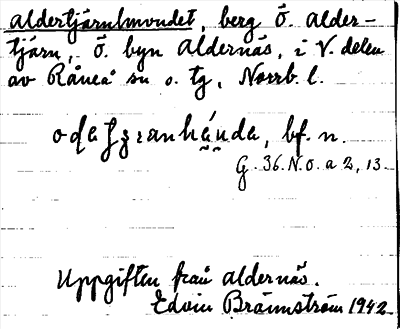 aldertjärnhmondet, berg Ö. alder-
tjärn, Ö. byn aldernäs, i V. delen
av Råneå sn o. tg, Norrb. l.
bf. n.
G. 36. N. O. a 2, 13
Uppgiften från aldernäs.
Edvin Brännström 1942